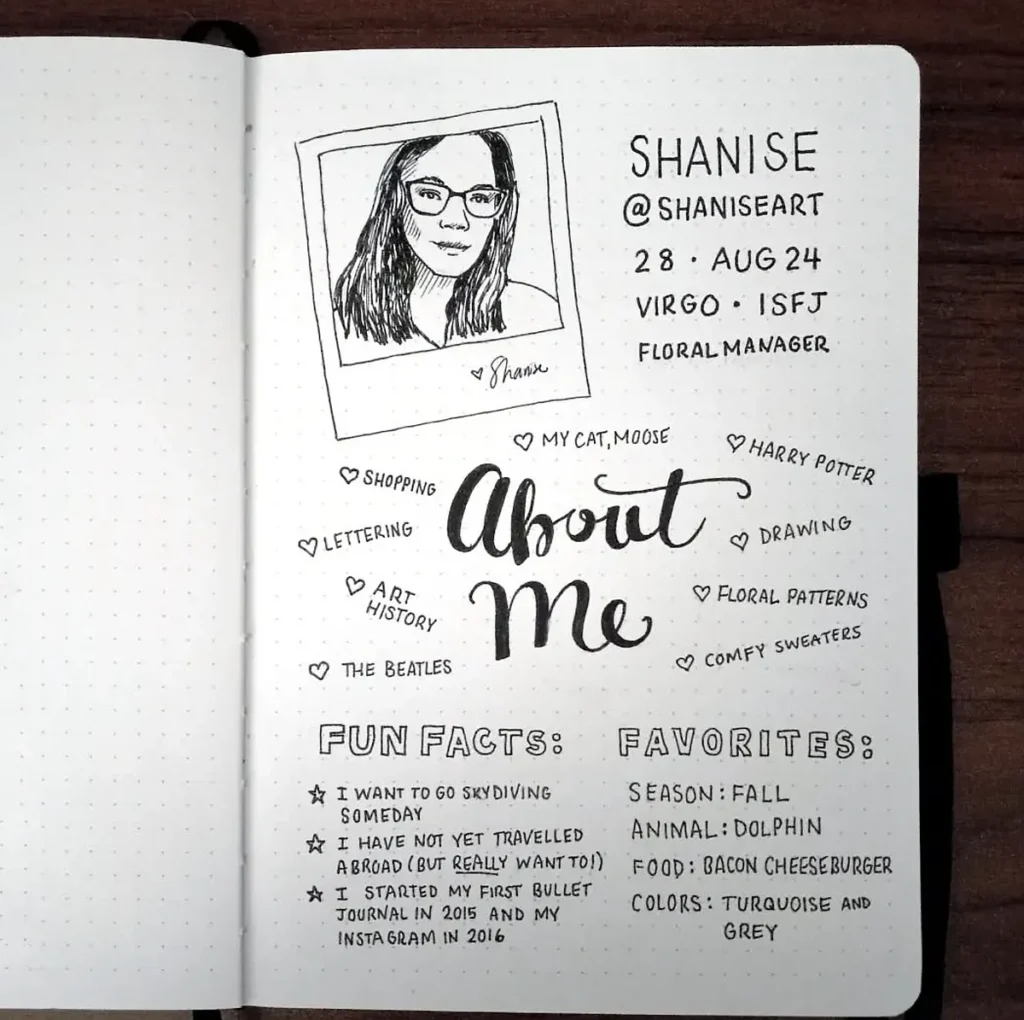 SHANISE
@SHANISEART
28 · AUG 24
VIRGO · ISFJ
FLORAL MANAGER
♡ Shanise
♡ MY CAT, MOOSE
♡ HARRY POTTER
♡ SHOPPING
♡ LETTERING
♡ DRAWING
♡ ART
HISTORY
♡ FLORAL PATTERNS
♡ THE BEATLES
♡ COMFY SWEATERS
About
Me
FUN FACTS:
☆ I WANT TO GO SKYDIVING
SOMEDAY
☆ I HAVE NOT YET TRAVELLED
ABROAD (BUT REALLY WANT TO!)
☆ I STARTED MY FIRST BULLET
JOURNAL IN 2015 AND MY
INSTAGRAM IN 2016
FAVORITES:
SEASON: FALL
ANIMAL: DOLPHIN
FOOD: BACON CHEESEBURGER
COLORS: TURQUOISE AND
GREY